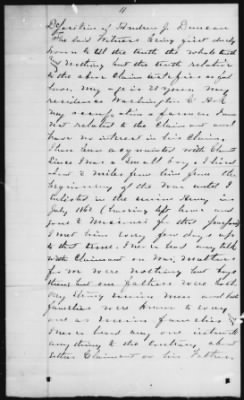 11
Deposition of Andrew J. Duncan
The said Witness being first duly
sworn to tell the truth the whole truth
& Nothing but the truth relative
to the above Claim testifies as fol
lows. My age is 21 years my
residence Washington Co Ark
my occupation a farmer, I am
not related to the Claimant and
have no interest in his Claim,
I have been acquainted with Clmt
Since I was a small boy. I lived
about 2 miles from him from the
beginning of the War until I
enlisted in the Union Army in
July 1862 (having left home and
gone to Missouri for that purpose)
I met him every few days up
to that time. I never had any talk
with Claimant on War matters
for we were nothing but boys
then but our fathers were both
Strong Union men and both
families were known to every
one as Union families
I never heard any one intimate
any thing to the contrary about
either Claimant or his Father.